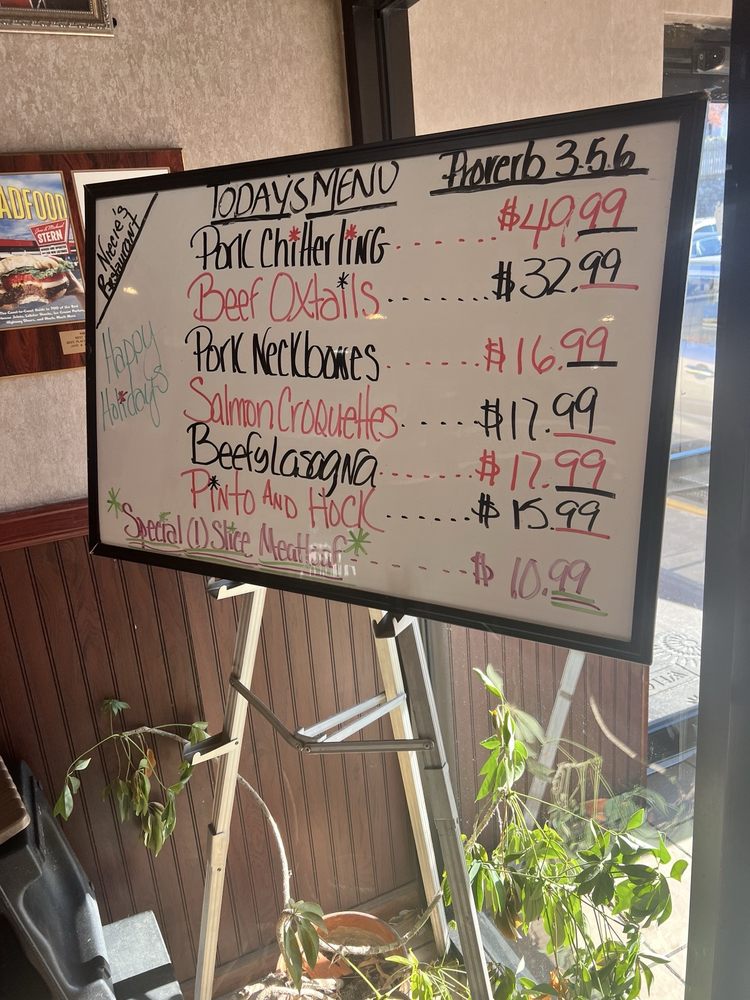 ADFOOD
STERN
Niecie's
Restaurant
TODAY'S MENU
Proverb 3.5.6
Pork Chitterling ........ $40.99
Beef Oxtails ........ $32.99
Pork Neckbones ........ $16.99
Salmon Croquettes ........ $17.99
Beefy Lasagna ........ $17.99
Pinto AND Hock ........ $15.99
Special (1) Slice Meatloaf ........ $10.99
Happy
Holidays